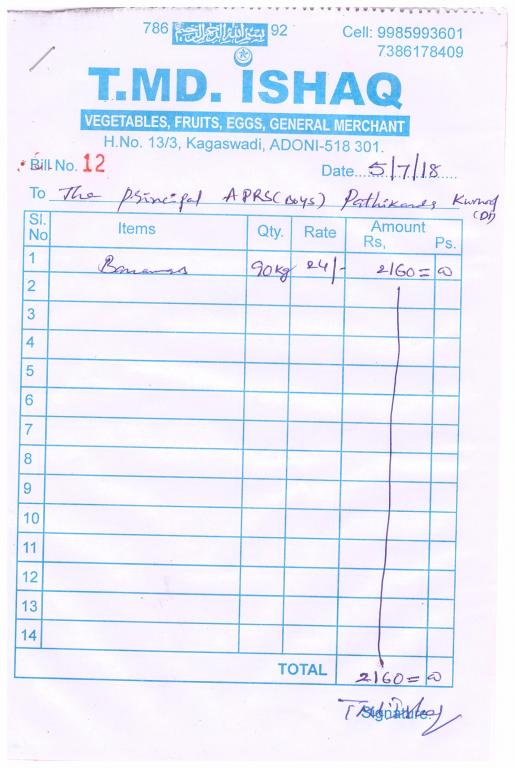 786 بسم الله الرحمن الرحيم 92
Cell: 9985993601
7386178409
T.MD. ISHAQ
VEGETABLES, FRUITS, EGGS, GENERAL MERCHANT
H.No. 13/3, Kagaswadi, ADONI-518 301.
Bill No. 12 Date....5/7/18.....
To The principal APRS(Boys) Kurnool
(Dt)
Sl. No Items Qty. Rate Amount Rs, Ps.
1 Bananas 90kg 24/- 2160=00
2
3
4
5
6
7
8
9
10
11
12
13
14
TOTAL 2160=00
Signature.